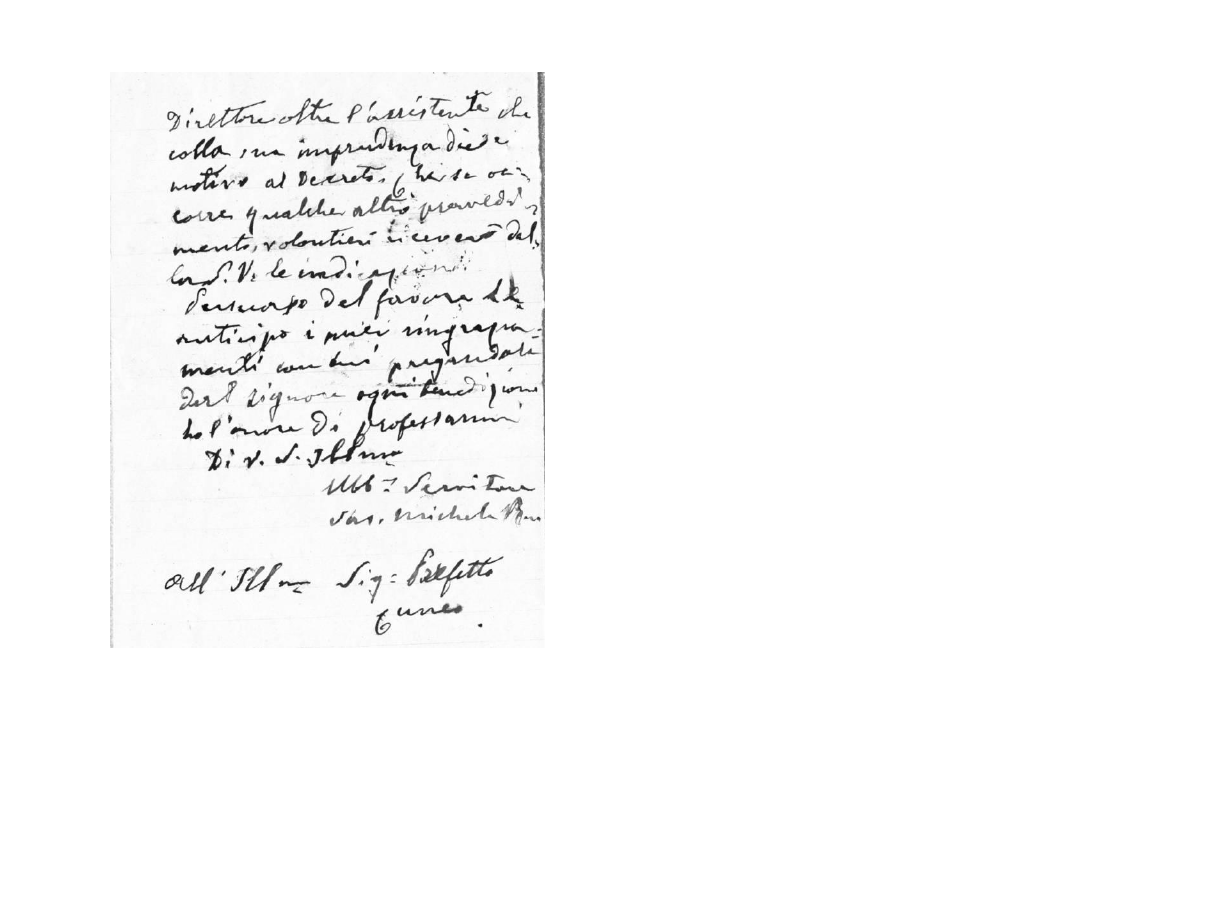 Direttore oltre l'assistente che
colla sua imprudenza diede
motivo al Decreto. Che se oc=
corre qualche altro provvedi=
mento, volontieri riceverò dal=
la S. V. le indicazioni
Persuaso del favore Le
anticipo i miei ringrazia=
menti con cui pregandole
dal Signore ogni benedizione
ho l'onore di professarmi
Di V. S. Ill.ma
Ubb.= Servitore
Sac. Michele
All' Ill.mo Sig= Prefetto
Cuneo.